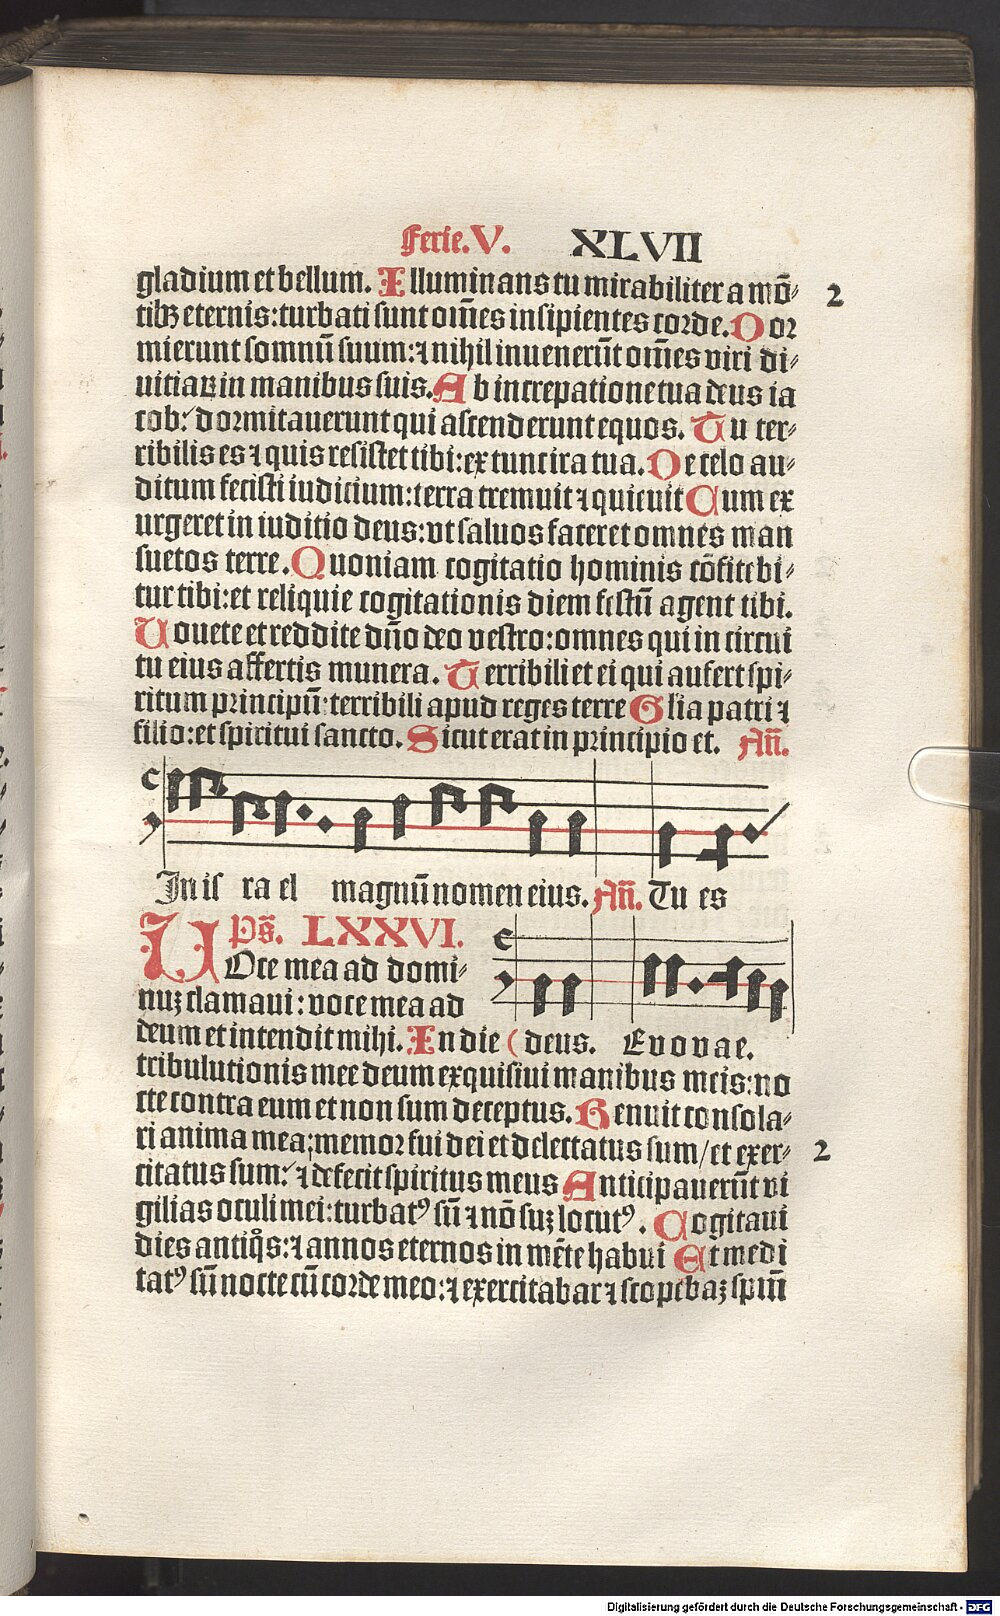 Ferie. V. XLVII
gladium et bellum. Illuminans tu mirabiliter a mō⸗ 2
tibꝫ eternis: turbati sunt om̄es insipientes corde. Dor
mierunt somnū suum: ⁊ nihil inuenerūt om̄es viri di⸗
uitiaꝝ in manibus suis. Ab increpatione tua deus ia
cob: dormitauerunt qui ascenderunt equos. Tu ter⸗
ribilis es ⁊ quis resistet tibi: ex tunc ira tua. De celo au⸗
ditum fecisti iudicium: terra tremuit ⁊ quieuit Cum ex
urgeret in iuditio deus: vt saluos faceret omnes man
suetos terre. Quoniam cogitatio hominis cōfitebi⸗
tur tibi: et reliquie cogitationis diem festū agent tibi.
Uouete et reddite dn̄o deo vestro: omnes qui in circui
tu eius affertis munera. Terribili et ei qui aufert spi⸗
ritum principū: terribili apud reges terre Glia patri ⁊
filio: et spiritui sancto. Sicut erat in principio et. An̄.
In is ra el magnū nomen eius. An̄. Tu es
Ps̄. LXXVI.
UOce mea ad domi⸗
nuꝫ clamaui: voce mea ad
deum et intendit mihi. In die ( deus. Euouae.
tribulutionis mee deum exquisiui manibus meis: no
cte contra eum et non sum deceptus. Renuit consola⸗
ri anima mea; memor fui dei et delectatus sum / et exer⸗ 2
citatus sum: ⁊ defecit spiritus meus Anticipauerūt vi
gilias oculi mei: turbatꝰ sū ⁊ nō suꝫ locutꝰ. Cogitaui
dies antiqͦs: ⁊ annos eternos in mēte habui Et medi
tatꝰ sū nocte cū corde meo: ⁊ exercitabar ⁊ scopebaꝫ spm̄
Digitalisierung gefördert durch die Deutsche Forschungsgemeinschaft - DFG